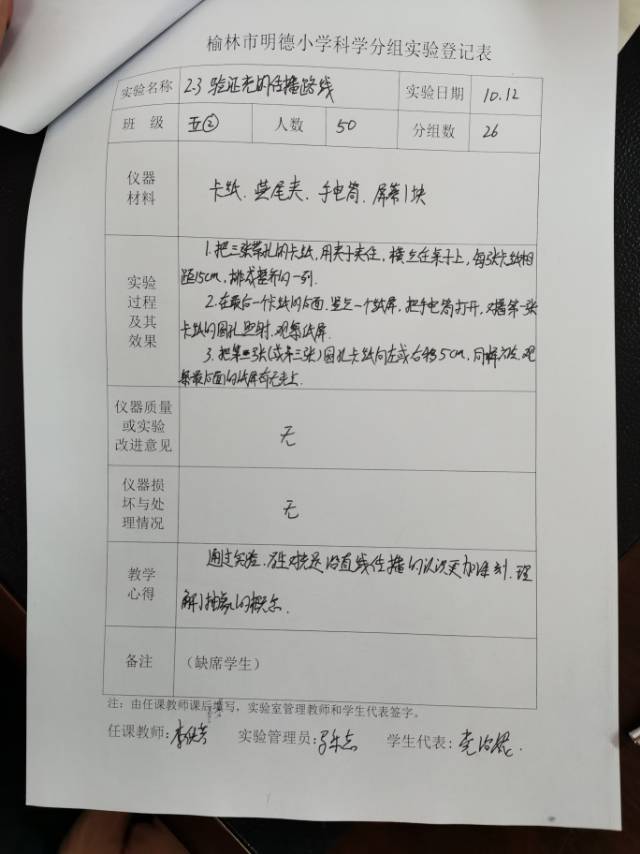 榆林市明德小学科学分组实验登记表
实验名称 2.3 验证光的传播路线 实验日期 10.12
班 级 五② 人数 50 分组数 26
仪器材料 卡纸、燕尾夹、手电筒、屏等1块
实验过程及其效果
1.把三张带孔的卡纸,用夹子夹住,横立在桌子上,每张卡纸相
距15cm,排成整齐的一列.
2.在最后一个卡纸的后面,竖立一个纸屏,把手电筒打开,对着第一张
卡纸的圆孔照射,观察纸屏.
3.把第二张(或第三张)圆孔卡纸向左或右移5cm,同样方法,观
察最后面的纸屏有无光.
仪器质量或实验改进意见 无
仪器损坏与处理情况 无
教学心得
通过实验,学生对光是沿直线传播的认识更加深刻,理
解了抽象的概念.
备注 (缺席学生)
注:由任课教师课后填写,实验室管理教师和学生代表签字。
任课教师: 实验管理员: 学生代表: